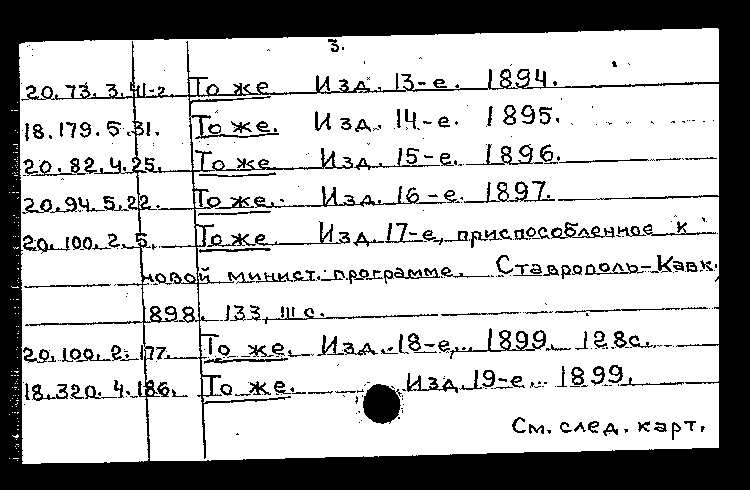 3.
20.73.3.41-г. То же Изд. 13-е. 1894.
18.179.5.31. То же. Изд. 14-е. 1895.
20.82.4.25. То же Изд. 15-е. 1896.
20.94.5.22. То же. Изд. 16-е. 1897.
20.100.2.5. То же Изд. 17-е, приспособленное к
новой минист. программе. Ставрополь-Кавк.,
1898. 133, III с.
20.100.2.177. То же. Изд. 18-е,.. 1899. 128с.
18.320.4.186. То же. Изд. 19-е... 1899.
См. след. карт.